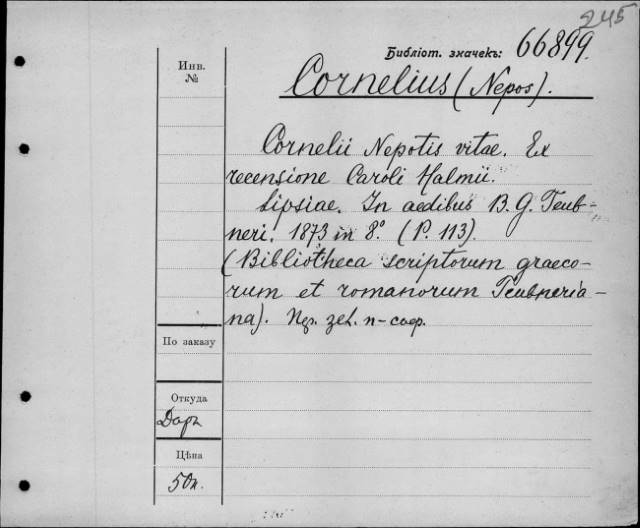 245
Библіот. значекъ: 66899.
Инв.
№
Cornelius (Nepos).
Cornelii Nepotis vitae. Ex
recensione Caroli Halmii.
Lipsiae. In aedibus B. G. Teub-
neri. 1873 in 8.° (P. 113).
(Bibliotheca scriptorum graeco-
rum et romanorum Teubneria-
na).
По заказу
Откуда
Даръ
Цѣна
50к.